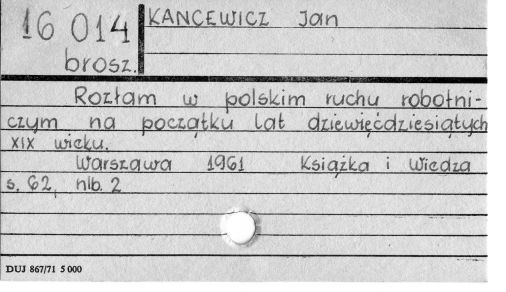 16 014
brosz.
KANCEWICZ Jan
Rozłam w polskim ruchu robotni-
czym na początku lat dziewięćdziesiątych
XIX wieku.
Warszawa 1961 Książka i Wiedza
s. 62, nlb. 2
DUJ 867/71 5 000